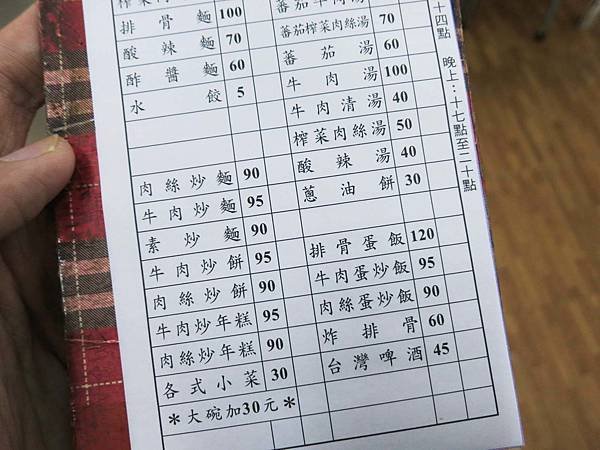 排骨麵 100
酸辣麵 70
酢醬麵 60
水餃 5
肉絲炒麵 90
牛肉炒麵 95
素炒麵 90
牛肉炒餅 95
肉絲炒餅 90
牛肉炒年糕 95
肉絲炒年糕 90
各式小菜 30
＊大碗加30元＊
蕃茄榨菜肉絲湯 70
蕃茄湯 60
牛肉湯 100
牛肉清湯 40
榨菜肉絲湯 50
酸辣湯 40
蔥油餅 30
排骨蛋飯 120
牛肉蛋炒飯 95
肉絲蛋炒飯 90
炸排骨 60
台灣啤酒 45
十四點 晚上：十七點至二十點